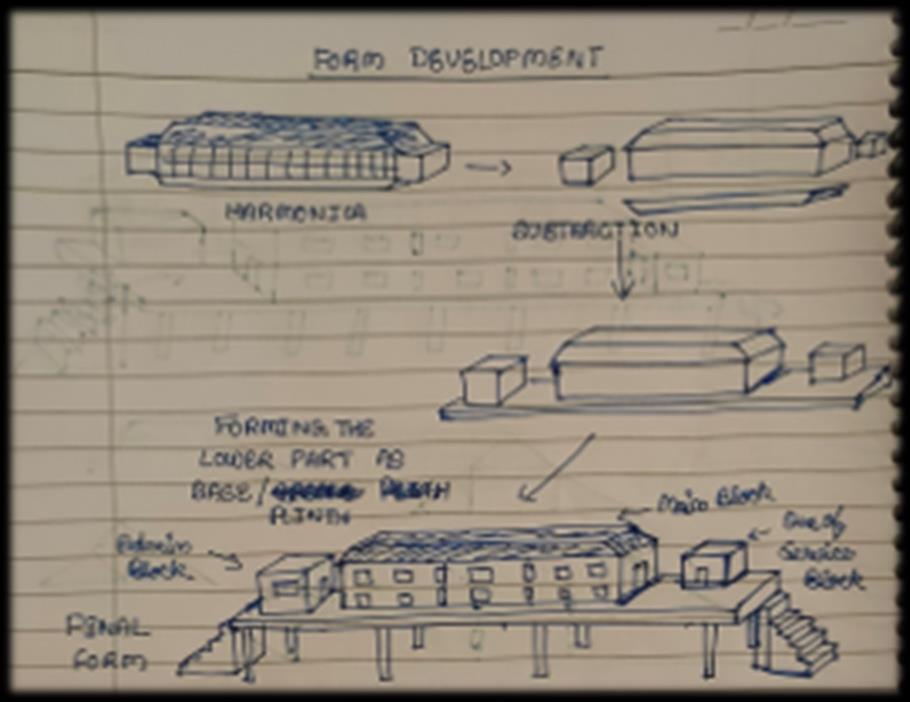 FORM DEVELOPMENT
HARMONICA
SUBTRACTION
FORMING THE
LOWER PART AS
BASE/
Main Block
Admin
Block
Service
Block
FINAL
FORM